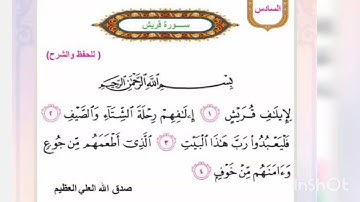 السادس
سورة قريش
( للحفظ والشرح )
بِسْمِ اللَّهِ الرَّحْمَٰنِ الرَّحِيمِ
لِإِيلَافِ قُرَيْشٍ ١ إِۦلَافِهِمْ رِحْلَةَ الشِّتَاءِ وَالصَّيْفِ ٢
فَلْيَعْبُدُوا رَبَّ هَٰذَا الْبَيْتِ ٣ الَّذِي أَطْعَمَهُم مِّن جُوعٍ
وَءَامَنَهُم مِّنْ خَوْفٍ ٤
صدق الله العلي العظيم
InShOt